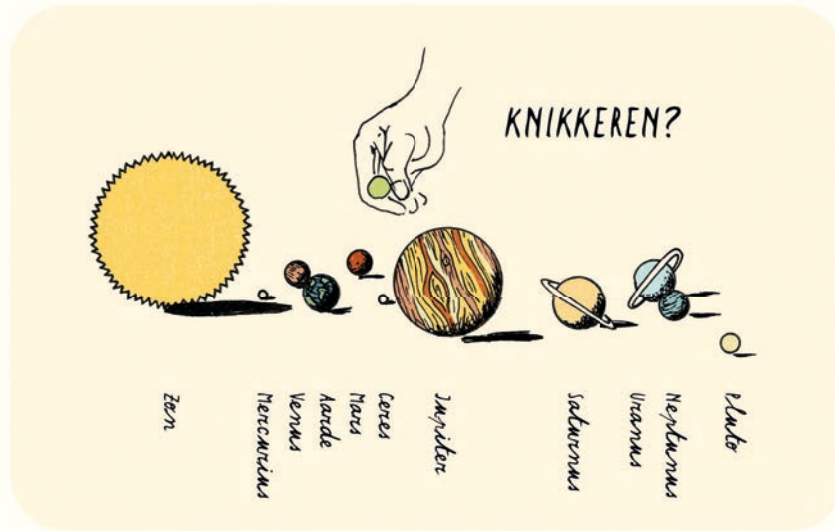 KNIKKEREN?
Zon
Mercurius
Venus
Aarde
Mars
Ceres
Jupiter
Saturnus
Uranus
Neptunus
Pluto